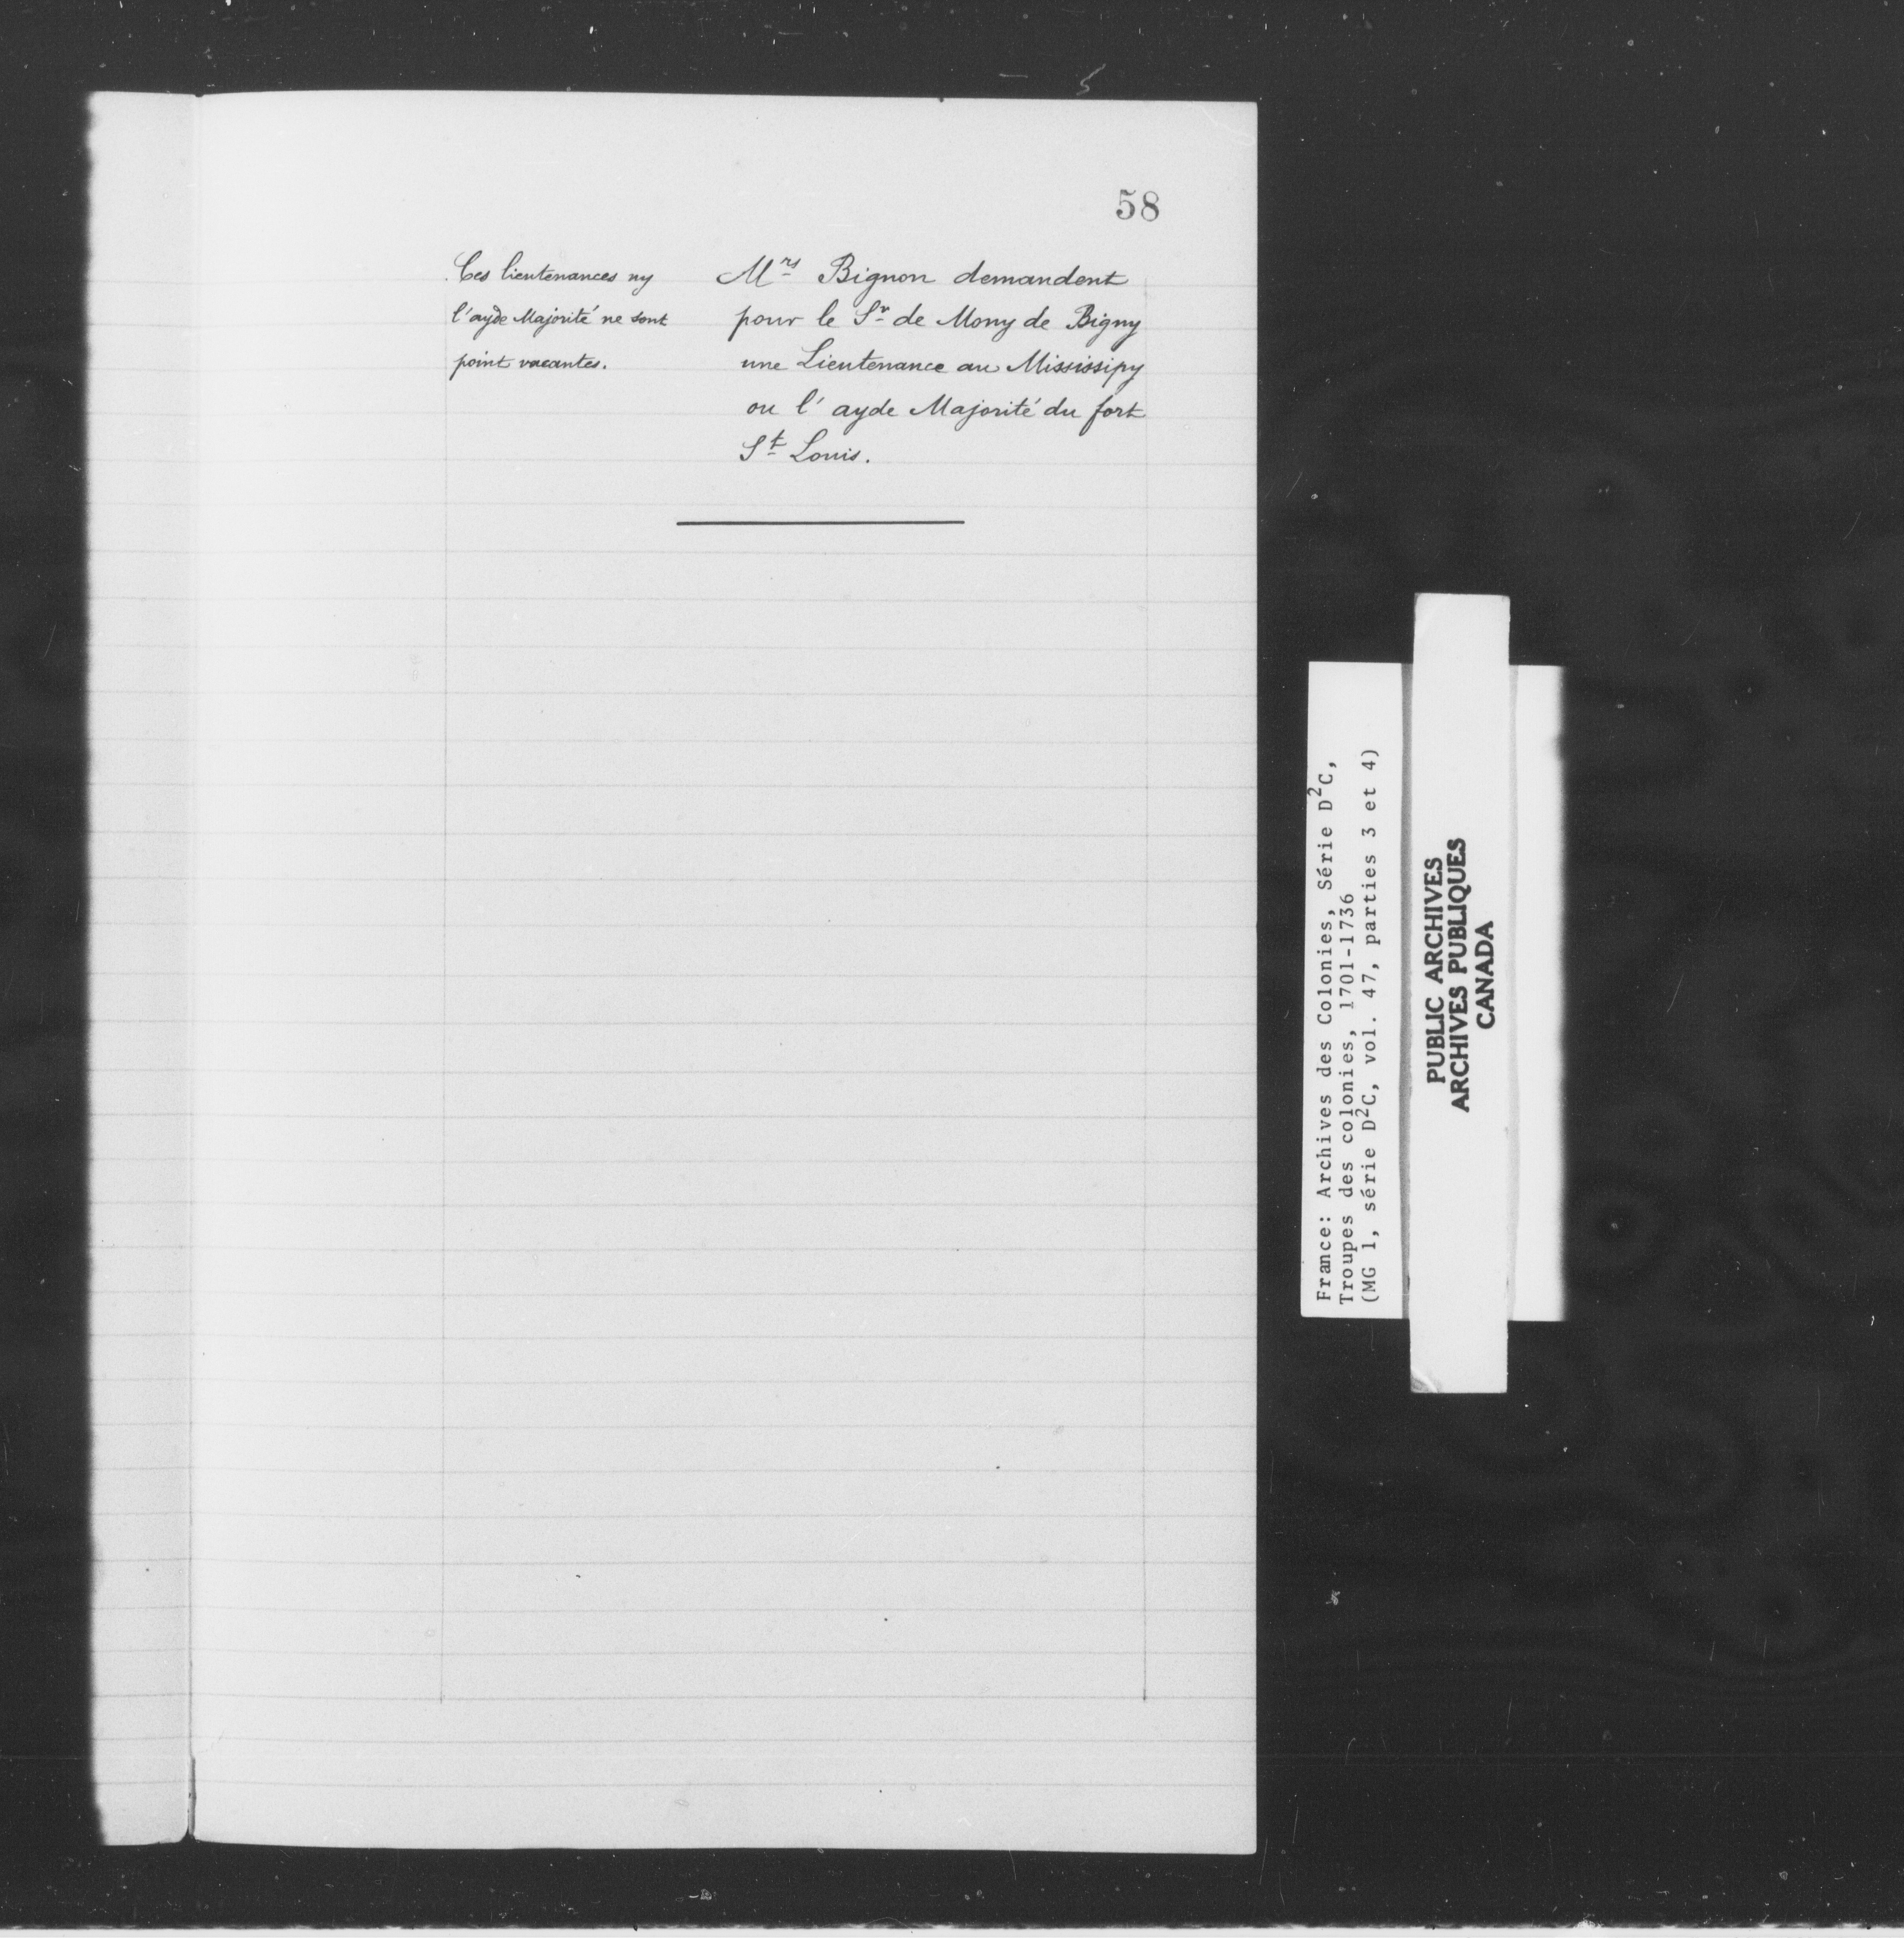 58
Ces lieutenances ny
l'ayde Majorité ne sont
point vacantes.
Mrs Bignon demandent
pour le Sr de Mony de Bigny
une Lieutenance au Mississipy
ou l'ayde Majorité du fort
St Louis.
France: Archives des Colonies, Série D²C,
Troupes des colonies, 1701-1736
(MG 1, série D²C, vol. 47, parties 3 et 4)
PUBLIC ARCHIVES
ARCHIVES PUBLIQUES
CANADA